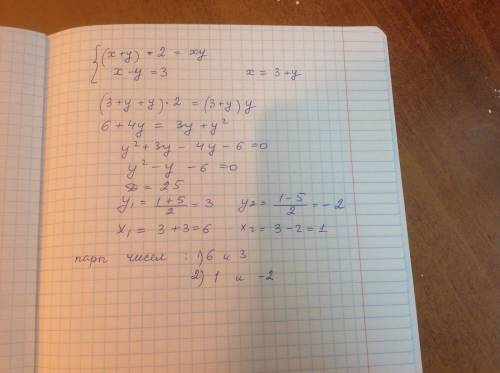 {(x+y)·2 = xy
x-y=3 x = 3+y
(3+y+y)·2 = (3+y)y
6+4y = 3y+y²
y²+3y-4y-6=0
y²-y-6=0
D = 25
y₁= (1+5)/2 = 3 y₂= (1-5)/2 = -2
x₁= 3+3=6 x₂= 3-2=1
пары чисел : 1) 6 и 3
2) 1 и -2